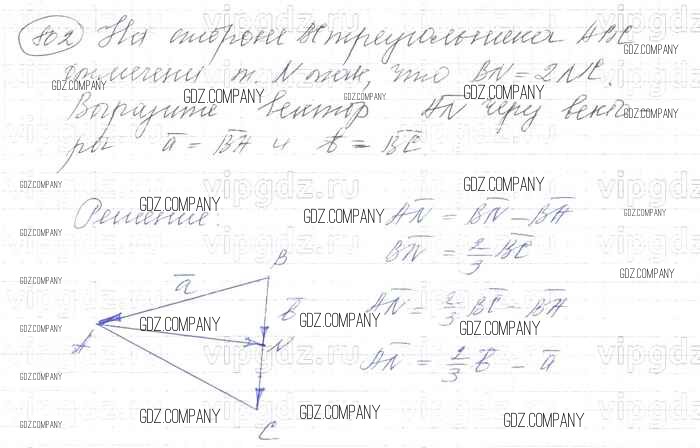 802 На стороне BC треугольника ABC
отмечена т. N так, что BN = 2NC.
Выразите вектор AN через векто-
ры a̅ = B̅A̅ и b̅ = B̅C̅.
Решение.
A̅N̅ = B̅N̅ – B̅A̅
B̅N̅ = 2/3 B̅C̅
A̅N̅ = 2/3 B̅C̅ – B̅A̅
A̅N̅ = 2/3 b̅ – a̅
B
a̅
b̅
A
N
C
GDZ.COMPANY
vipgdz.ru